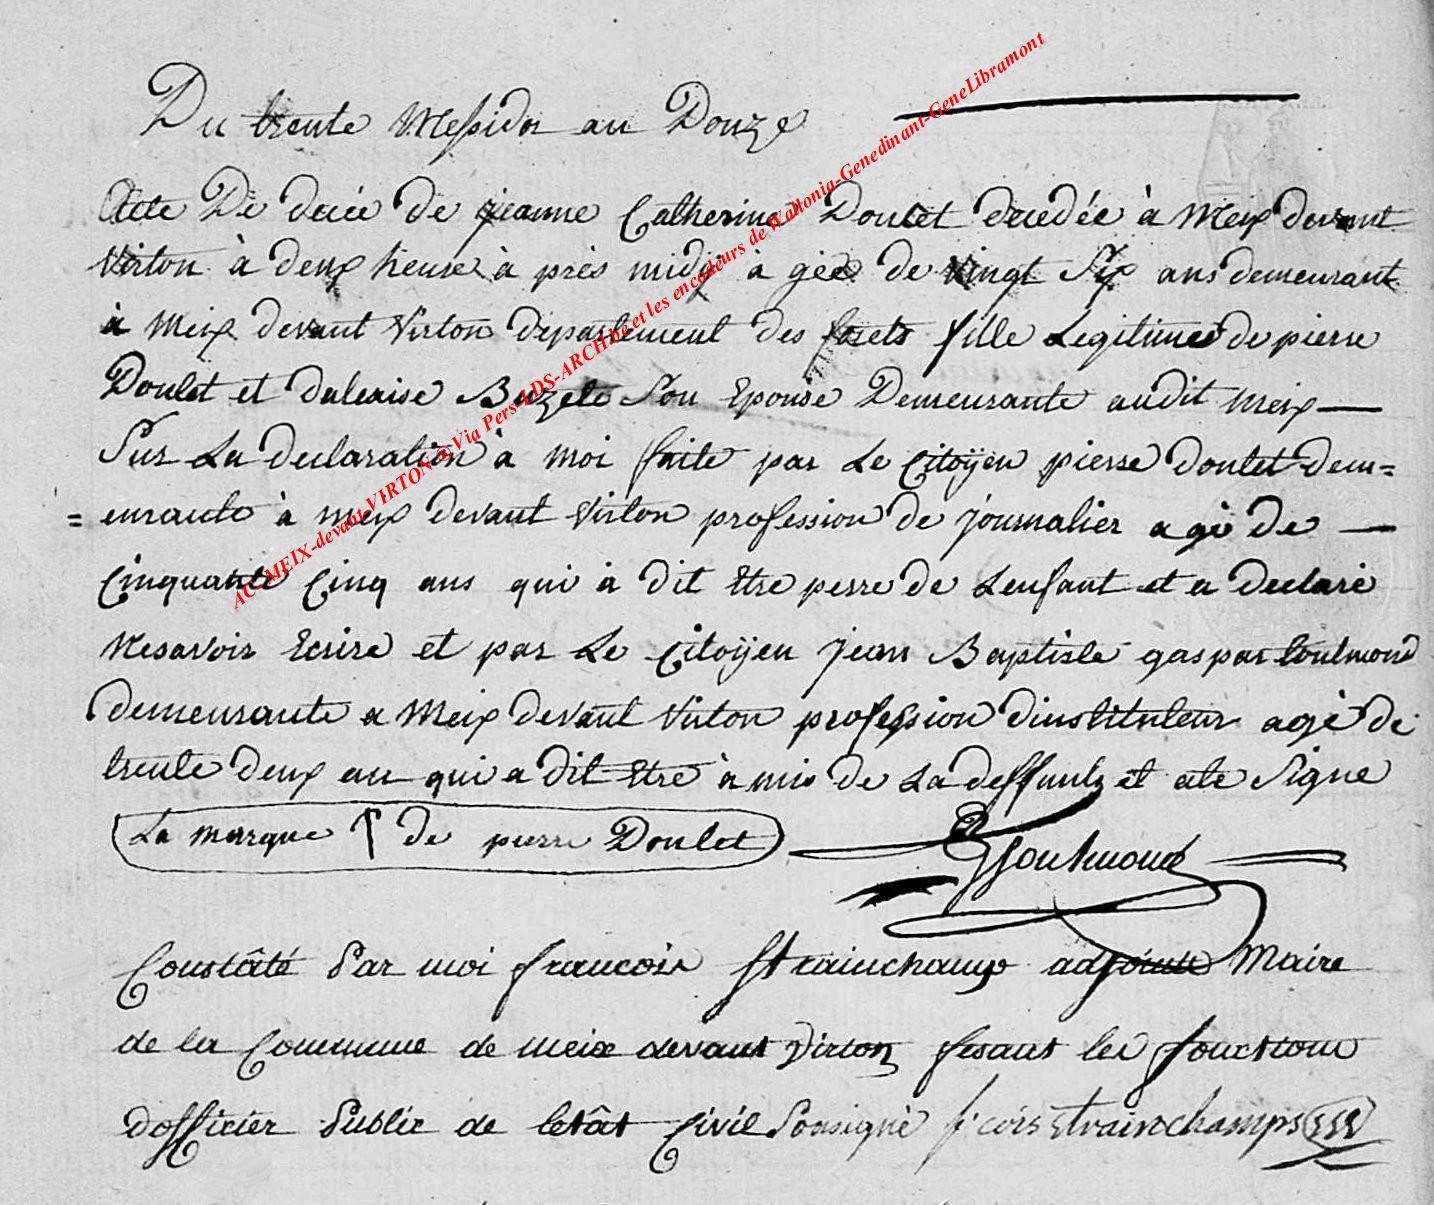 Du trente Messidor an Douze
Acte De decée de jeanne Catherine Doulet decedée à Meix devant
Virton à deux heure à près midy à gée de vingt Six ans demeurant
à Meix devant Virton departement des forets fille Legitime de pierre
Doulet et daleaise Bazele Son Epouse Demeurante audit Meix —
Sur La declaration à moi faite par Le Citoÿen pierre doulet dem=
=eurante à Meix devant Virton profession de journalier agé De —
Cinquante Cinq ans qui à dit Etre perre de Lenfant et a declaré
Nesavoir Ecrire et par Le Citoÿen jean Baptiste gaspar Soulmond
demeurante a Meix devant Virton profession dinstituteur agé de
trente deux an qui a dit Etre à mis de La deffunte et ate Signe
La marque de pierre Doulet Soulmond
Constâté Par moi francois Strainchamp adjoint Maire
de la Commune de meix devant Virton fesant les fonctions
dofficier Public de letât Civil Sousigné f:cois strainchamps
AC-MEIX-devant-VIRTON@Via Pers-ADS-ARCH.be et les encodeurs de Wallonia-Genedinant-GeneLibramont